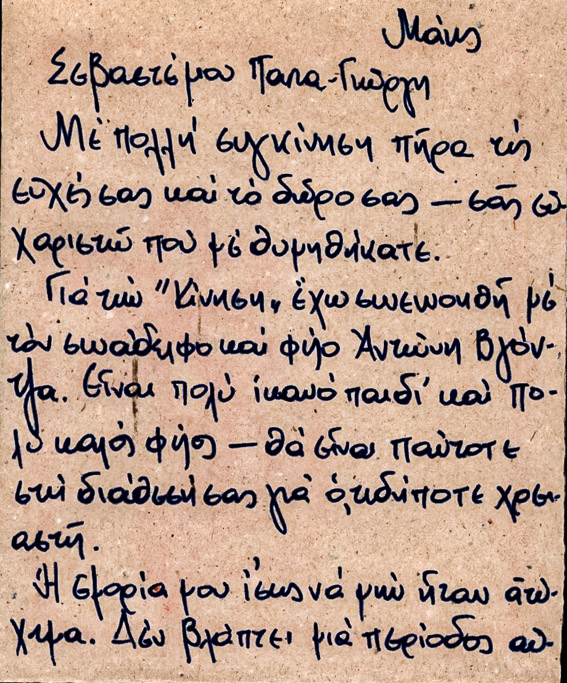 Μάης
Σεβαστέ μου Παπα-Γιώργη
Μέ πολλή συγκίνηση πῆρα τίς
εὐχές σας καί τό δῶρο σας — σᾶς εὐ-
χαριστῶ πού μέ θυμηθήκατε.
Γιά τήν "Κίνηση" ἔχω συνεννοηθῆ μέ
τόν συνάδελφο καί φίλο Ἀντώνη Βγόν-
τζα. Εἶναι πολύ ἱκανό παιδί καί πο-
λύ καλός φίλος — θά εἶναι πάντοτε
στή διάθεσή σας γιά ὅ,τιδήποτε χρει-
αστῆ.
Ἡ ἐξορία μου ἴσως νά μήν ἦταν ἀτύ-
χημα. Δέν βλάπτει μιά περίοδος αὐ-